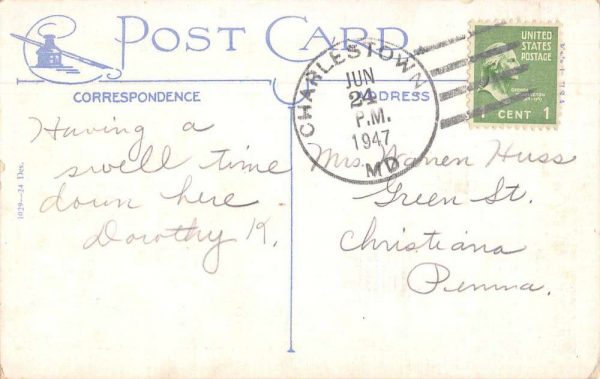 POST CARD
CORRESPONDENCE
ADDRESS
UNITED
STATES
POSTAGE
1 CENT 1
CHARLESTOWN
JUN
24
P.M.
1947
MD
Having a
swell time
down here.
Dorothy K.
Mrs. Warren Huss
Green St.
Christiana
Penna.
1029—24 Des.